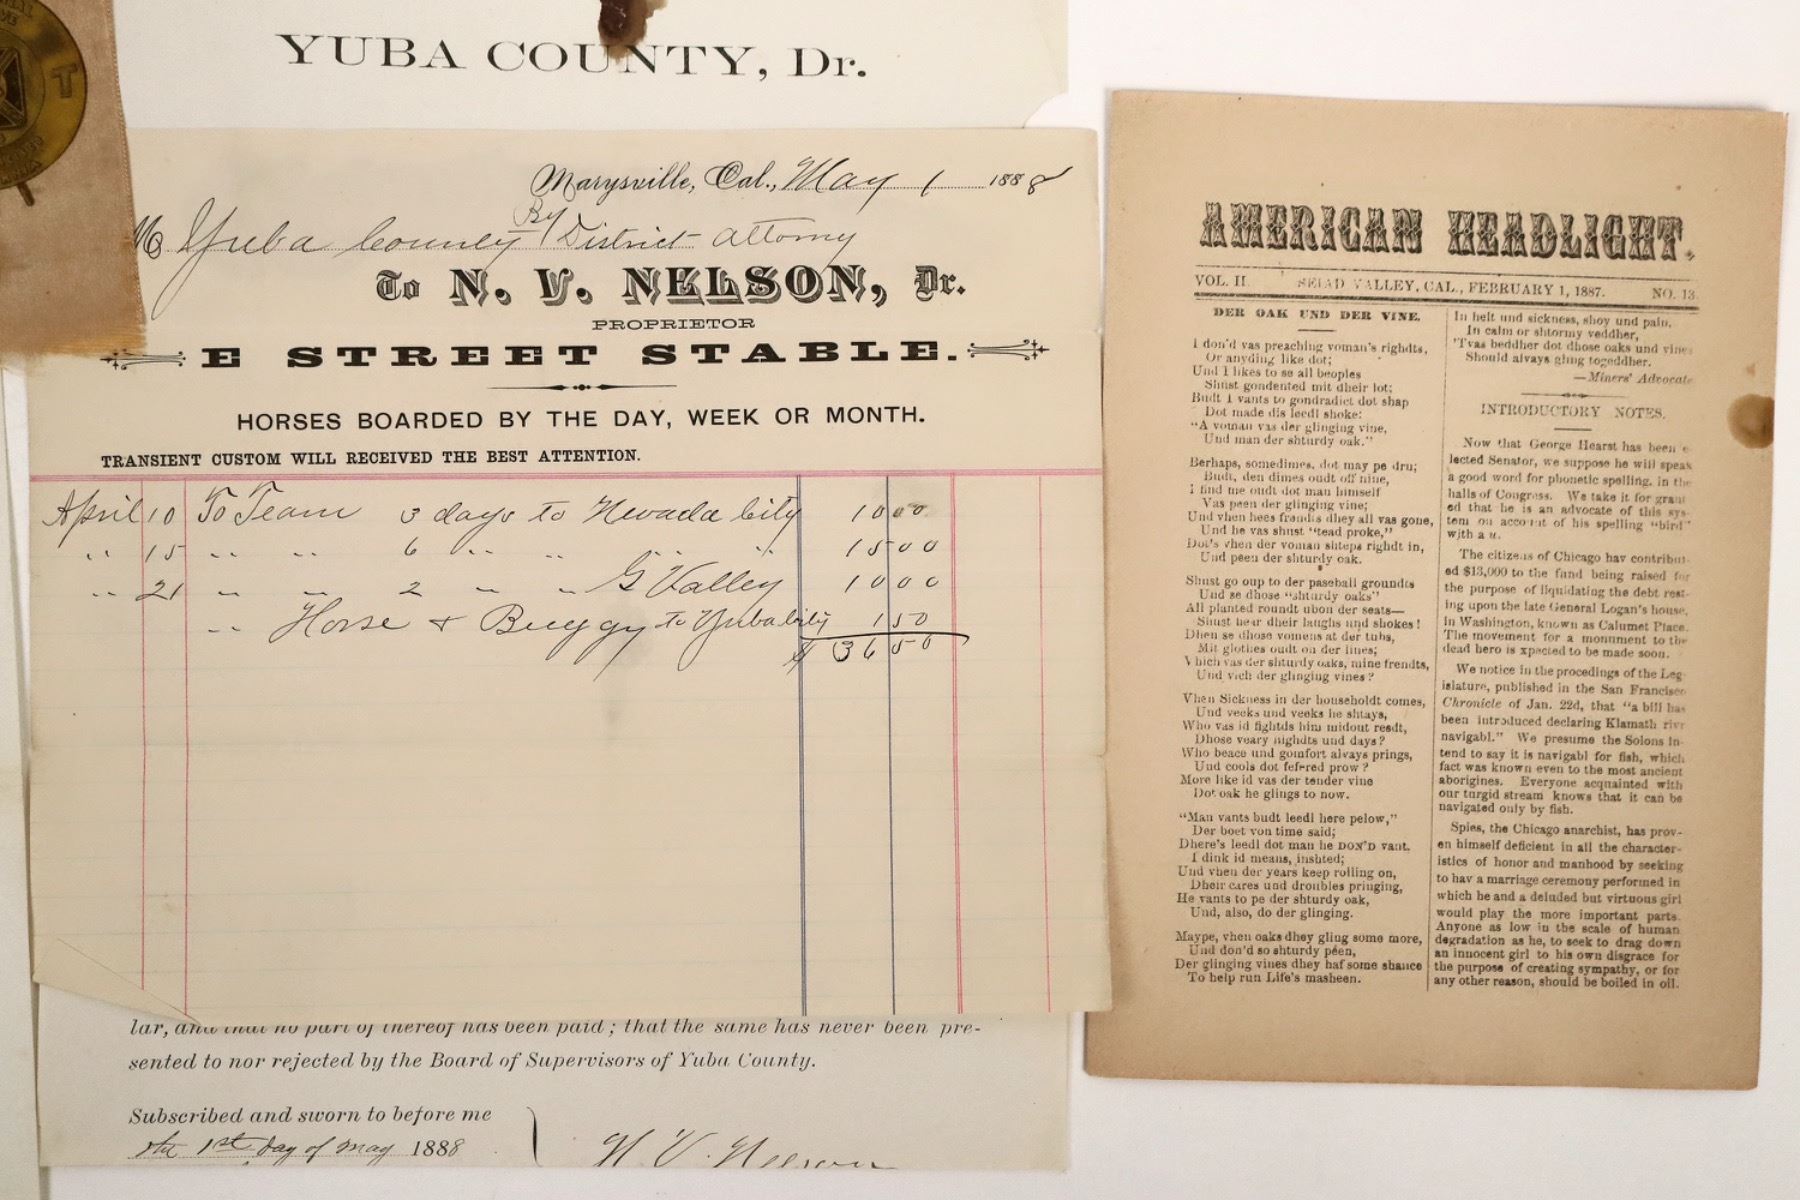 YUBA COUNTY, Dr.
Marysville, Cal., May 1 1888
M Yuba County By District Attorny
To N. V. NELSON, Dr.
PROPRIETOR
E STREET STABLE.
HORSES BOARDED BY THE DAY, WEEK OR MONTH.
TRANSIENT CUSTOM WILL RECEIVED THE BEST ATTENTION.
April 10 To Team 3 days to Nevada City 10 00
" 15 " " 6 " " " " 15 00
" 21 " " 2 " " G Valley 10 00
" Horse & Buggy to Yuba City 1 50
$ 36 50
lar, and that no part of thereof has been paid; that the same has never been pre-
sented to nor rejected by the Board of Supervisors of Yuba County.
Subscribed and sworn to before me
the 1st day of May 1888
N. V. Nelson
T
AMERICAN HEADLIGHT.
VOL. II. SEIAD VALLEY, CAL., FEBRUARY 1, 1887. NO. 13.
DER OAK UND DER VINE.
I don'd vas preaching voman's righdts,
Or anyding like dot;
Und I likes to se all beoples
Shust gondented mit dheir lot;
Budt I vants to gondradict dot shap
Dot made dis leedl shoke:
"A voman vas der glinging vine,
Und man der shturdy oak."
Berhaps, somedimes, dot may pe dru;
Budt, den dimes oudt off nine,
I find me oudt dot man himself
Vas peen der glinging vine;
Und vhen hees frendts dhey all vas gone,
Und he vas shust "tead proke,"
Dot's vhen der voman shteps righdt in,
Und peen der shturdy oak.
Shust go oup to der paseball groundts
Und se dhose "shturdy oaks"
All planted roundt ubon der seats—
Shust hear dheir laughs und shokes!
Dhen se dhose vomens at der tubs,
Mit glothes oudt on der lines;
Vhich vas der shturdy oaks, mine frendts,
Und vich der glinging vines?
Vhen Sickness in der householdt comes,
Und veeks und veeks he shtays,
Who vas id fightds him midout resdt,
Dhose veary nighdts und days?
Who beace und gomfort alvays prings,
Und cools dot fefered prow?
More like id vas der tender vine
Dot oak he glings to now.
"Man vants budt leedl here pelow,"
Der boet von time said;
Dhere's leedl dot man he DON'D vant.
I dink id means, inshted;
Und vhen der years keep rolling on,
Dheir cares und droubles pringing,
He vants to pe der shturdy oak,
Und, also, do der glinging.
Maype, vhen oaks dhey gling some more,
Und don'd so shturdy péen,
Der glinging vines dhey haf some shance
To help run Life's masheen.
In helt und sickness, shoy und pain,
In calm or shtormy veddher,
'Tvas beddher dot dhose oaks und vines
Should alvays gling togeddher.
—Miners' Advocate
INTRODUCTORY NOTES.
Now that George Hearst has been e-
lected Senator, we suppose he will speak
a good word for phonetic spelling, in the
halls of Congress. We take it for grant
ed that he is an advocate of this sys-
tem on account of his spelling "bird"
with a u.
The citizens of Chicago hav contribut-
ed $13,000 to the fund being raised for
the purpose of liquidating the debt rest-
ing upon the late General Logan's house,
in Washington, known as Calumet Place.
The movement for a monument to the
dead hero is xpected to be made soon.
We notice in the procedings of the Leg-
islature, published in the San Francisco
Chronicle of Jan. 22d, that "a bill has
been introduced declaring Klamath rivr
navigabl." We presume the Solons in-
tend to say it is navigabl for fish, which
fact was known even to the most ancient
aborigines. Everyone acquainted with
our turgid stream knows that it can be
navigated only by fish.
Spies, the Chicago anarchist, has prov-
en himself deficient in all the character-
istics of honor and manhood by seeking
to hav a marriage ceremony performed in
which he and a deluded but virtuous girl
would play the more important parts.
Anyone as low in the scale of human
degradation as he, to seek to drag down
an innocent girl to his own disgrace for
the purpose of creating sympathy, or for
any other reason, should be boiled in oil.